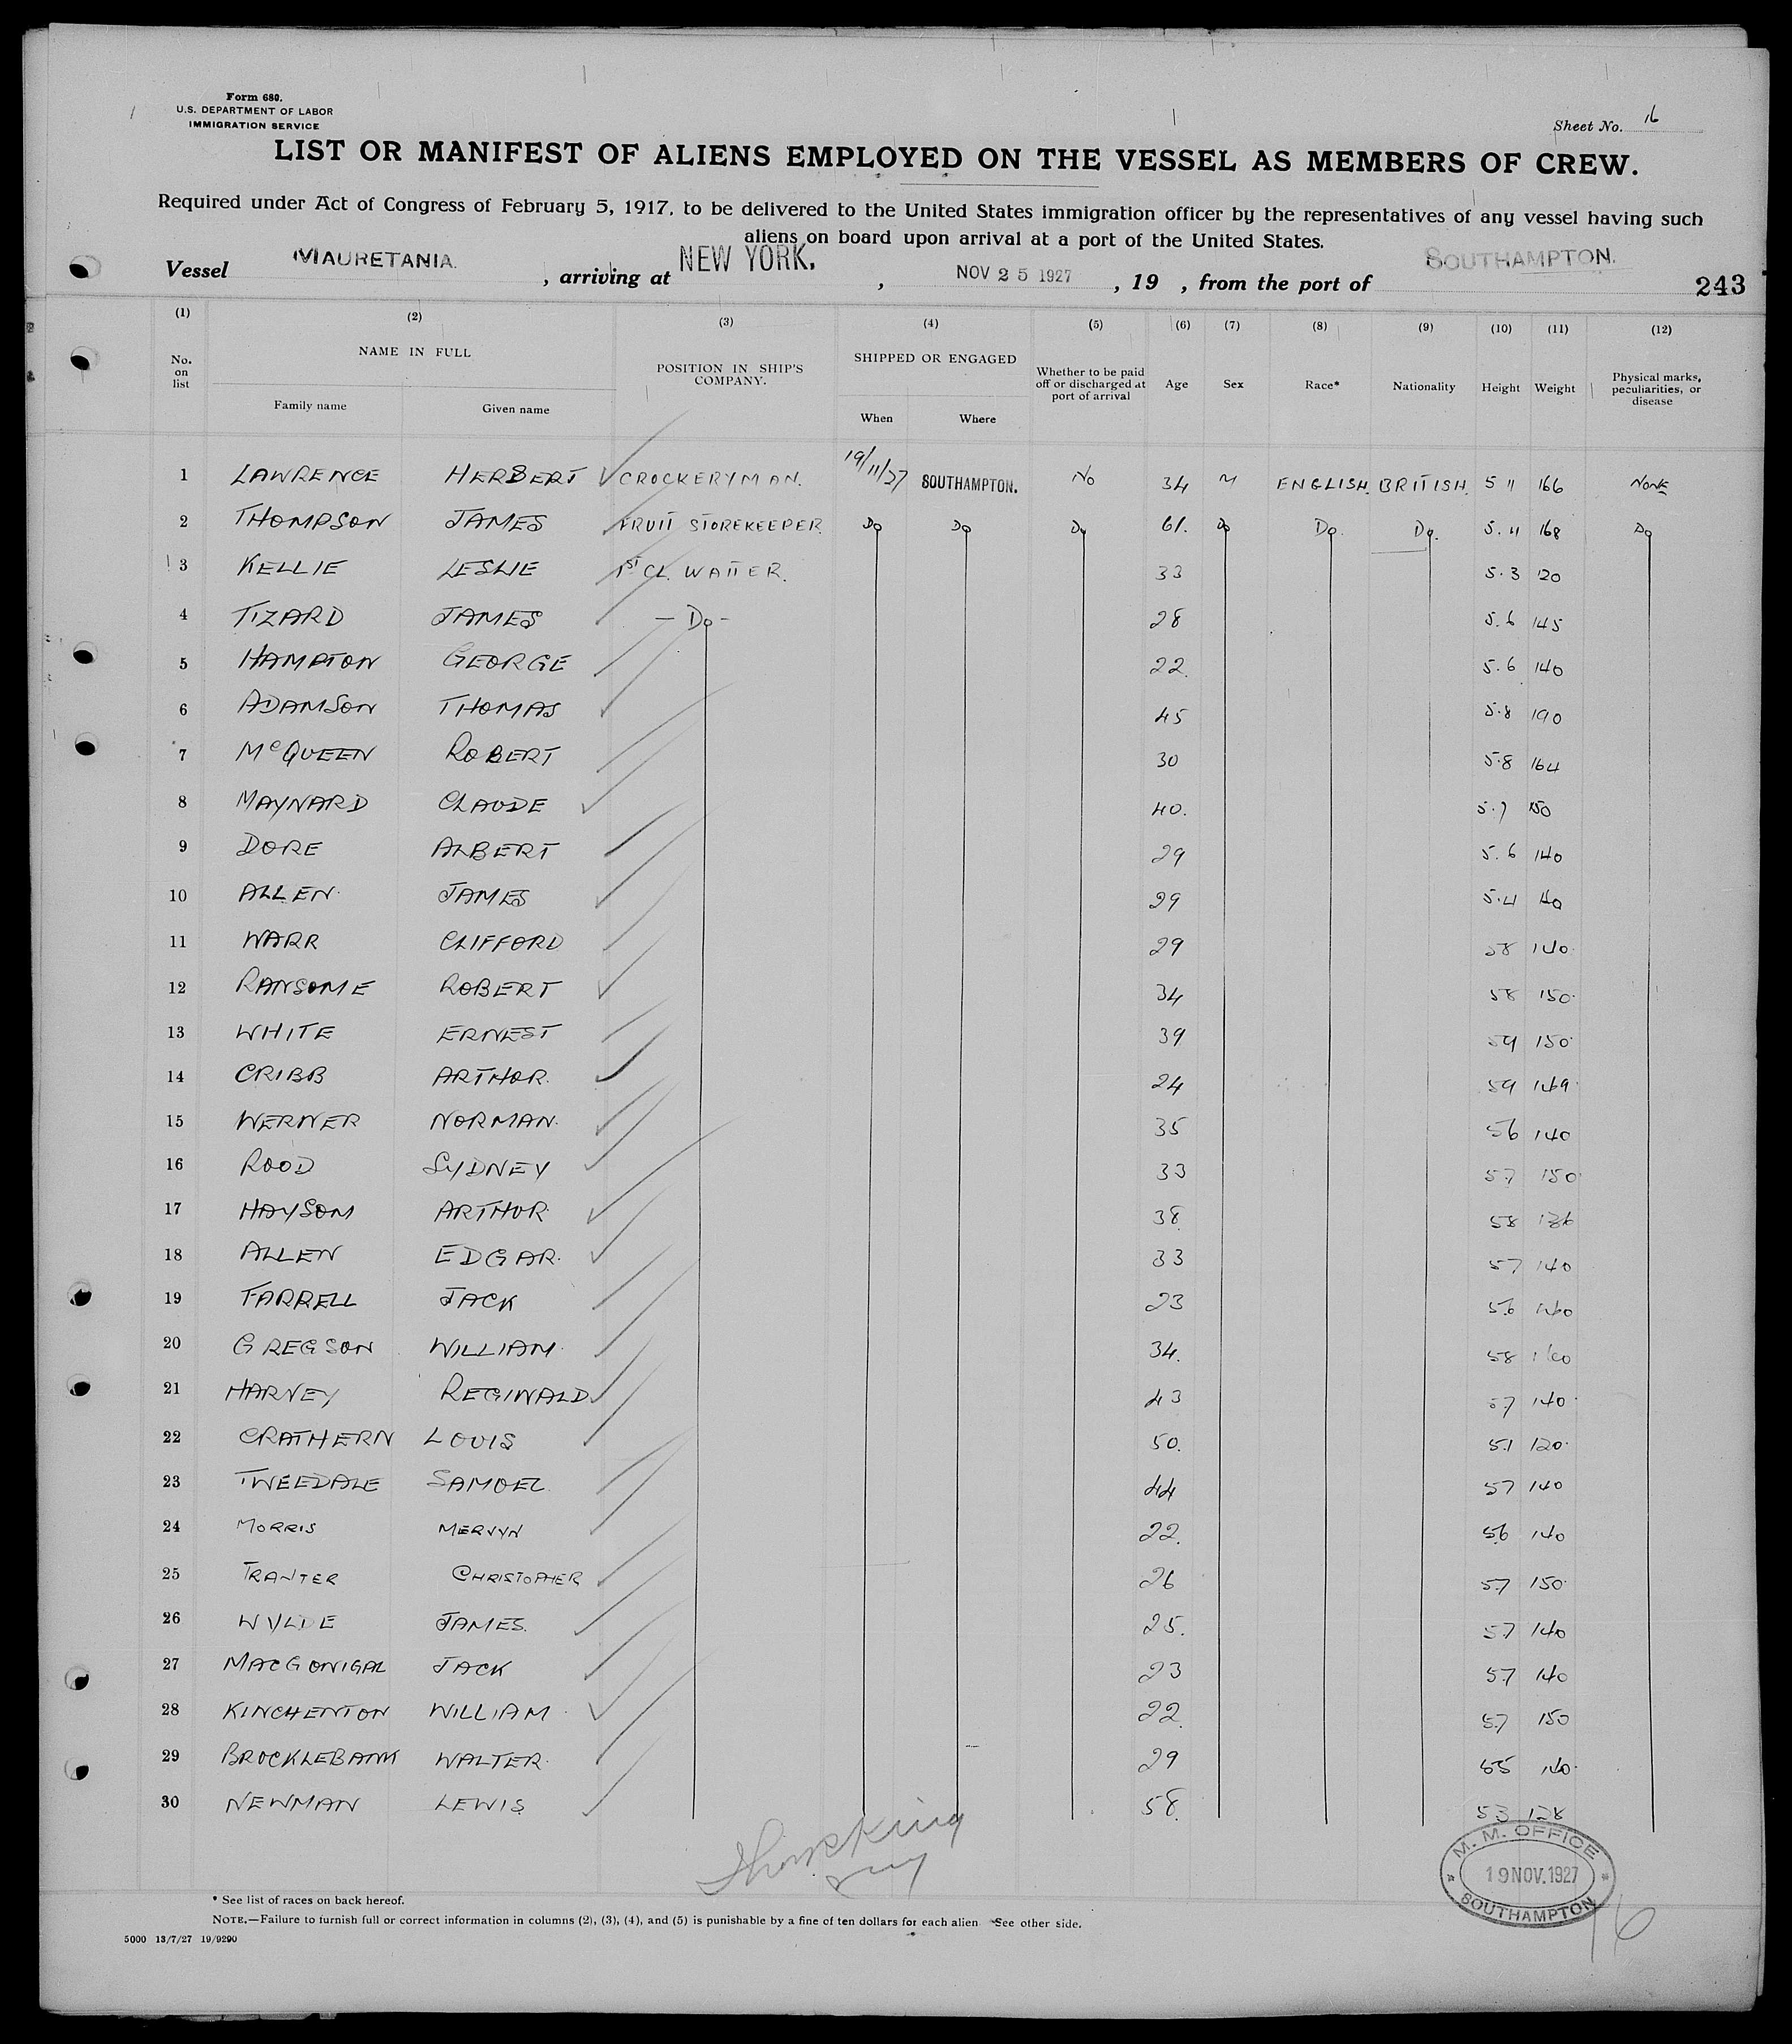 Form 680.
U.S. DEPARTMENT OF LABOR
IMMIGRATION SERVICE
Sheet No. 16
LIST OR MANIFEST OF ALIENS EMPLOYED ON THE VESSEL AS MEMBERS OF CREW.
Required under Act of Congress of February 5, 1917, to be delivered to the United States immigration officer by the representatives of any vessel having such
aliens on board upon arrival at a port of the United States.
Vessel MAURETANIA , arriving at NEW YORK. , NOV 25 1927 , 19 , from the port of SOUTHAMPTON. 243
(1) (2) (3) (4) (5) (6) (7) (8) (9) (10) (11) (12)
No. on list NAME IN FULL Family name Given name POSITION IN SHIP'S COMPANY. SHIPPED OR ENGAGED When Where Whether to be paid off or discharged at port of arrival Age Sex Race* Nationality Height Weight Physical marks, peculiarities, or disease
1 LAWRENCE HERBERT CROCKERYMAN. 19/11/27 SOUTHAMPTON. No 34 M ENGLISH. BRITISH. 5 11 166 NONE
2 THOMPSON JAMES FRUIT STOREKEEPER. Do Do Do 61. Do Do. Do. 5.11 168 Do
3 KELLIE LESLIE 1ST CL. WAITER. 33 5.3 120
4 TIZARD JAMES - Do - 28 5.6 145
5 HAMPTON GEORGE 22. 5.6 140
6 ADAMSON THOMAS 45 5.8 190
7 McQUEEN ROBERT 30 5.8 164
8 MAYNARD CLAUDE 40. 5.7 150
9 DORE ALBERT 29 5.6 140
10 ALLEN. JAMES 29 5.4 140
11 WARR CLIFFORD 29 58 140.
12 RANSOME ROBERT 34 58 150.
13 WHITE ERNEST 39 59 150.
14 CRIBB ARTHUR. 24 59 149.
15 WERNER NORMAN. 35 56 140
16 ROOD SYDNEY 33 57 150.
17 HAYSOM ARTHUR. 38. 58 136
18 ALLEN EDGAR. 33 57 140
19 FARRELL JACK 23 56 140
20 GREGSON WILLIAM. 34. 58 160
21 HARVEY REGINALD. 43 57 140.
22 CRATHERN LOUIS 50. 51 120.
23 TWEEDALE SAMUEL. 44 57 140
24 MORRIS MERVYN 22. 56 140
25 TRANTER CHRISTOPHER 26 57 150.
26 WYLDE JAMES. 25. 57 140
27 MACGONIGAL JACK 23 57 140
28 KINCHENTON WILLIAM. 22. 57 150
29 BROCKLEBANK WALTER. 29 55 140.
30 NEWMAN LEWIS 58. 53 128
M. M. OFFICE
19 NOV. 1927
SOUTHAMPTON
16
* See list of races on back hereof.
NOTE.—Failure to furnish full or correct information in columns (2), (3), (4), and (5) is punishable by a fine of ten dollars for each alien See other side.
5000 13/7/27 19/9290